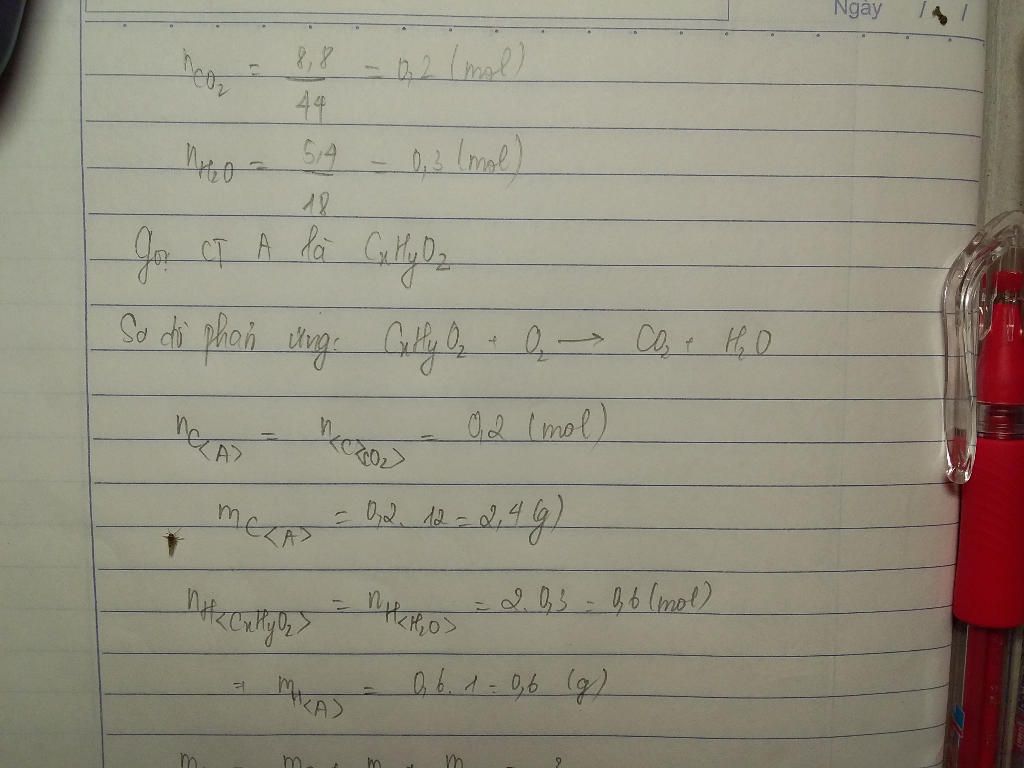 Ngày / /
nCO2 = 8,8/44 = 0,2 (mol)
nH2O = 5,4/18 = 0,3 (mol)
Gọi CT A là CxHyO2
Sơ đồ phản ứng: CxHyO2 + O2 → CO2 + H2O
nC<A> = n<C<CO2> = 0,2 (mol)
mC<A> = 0,2. 12 = 2,4 (g)
nH<CxHyO2> = nH<H2O> = 2. 0,3 = 0,6 (mol)
⇒ mH<A> = 0,6. 1 = 0,6 (g)